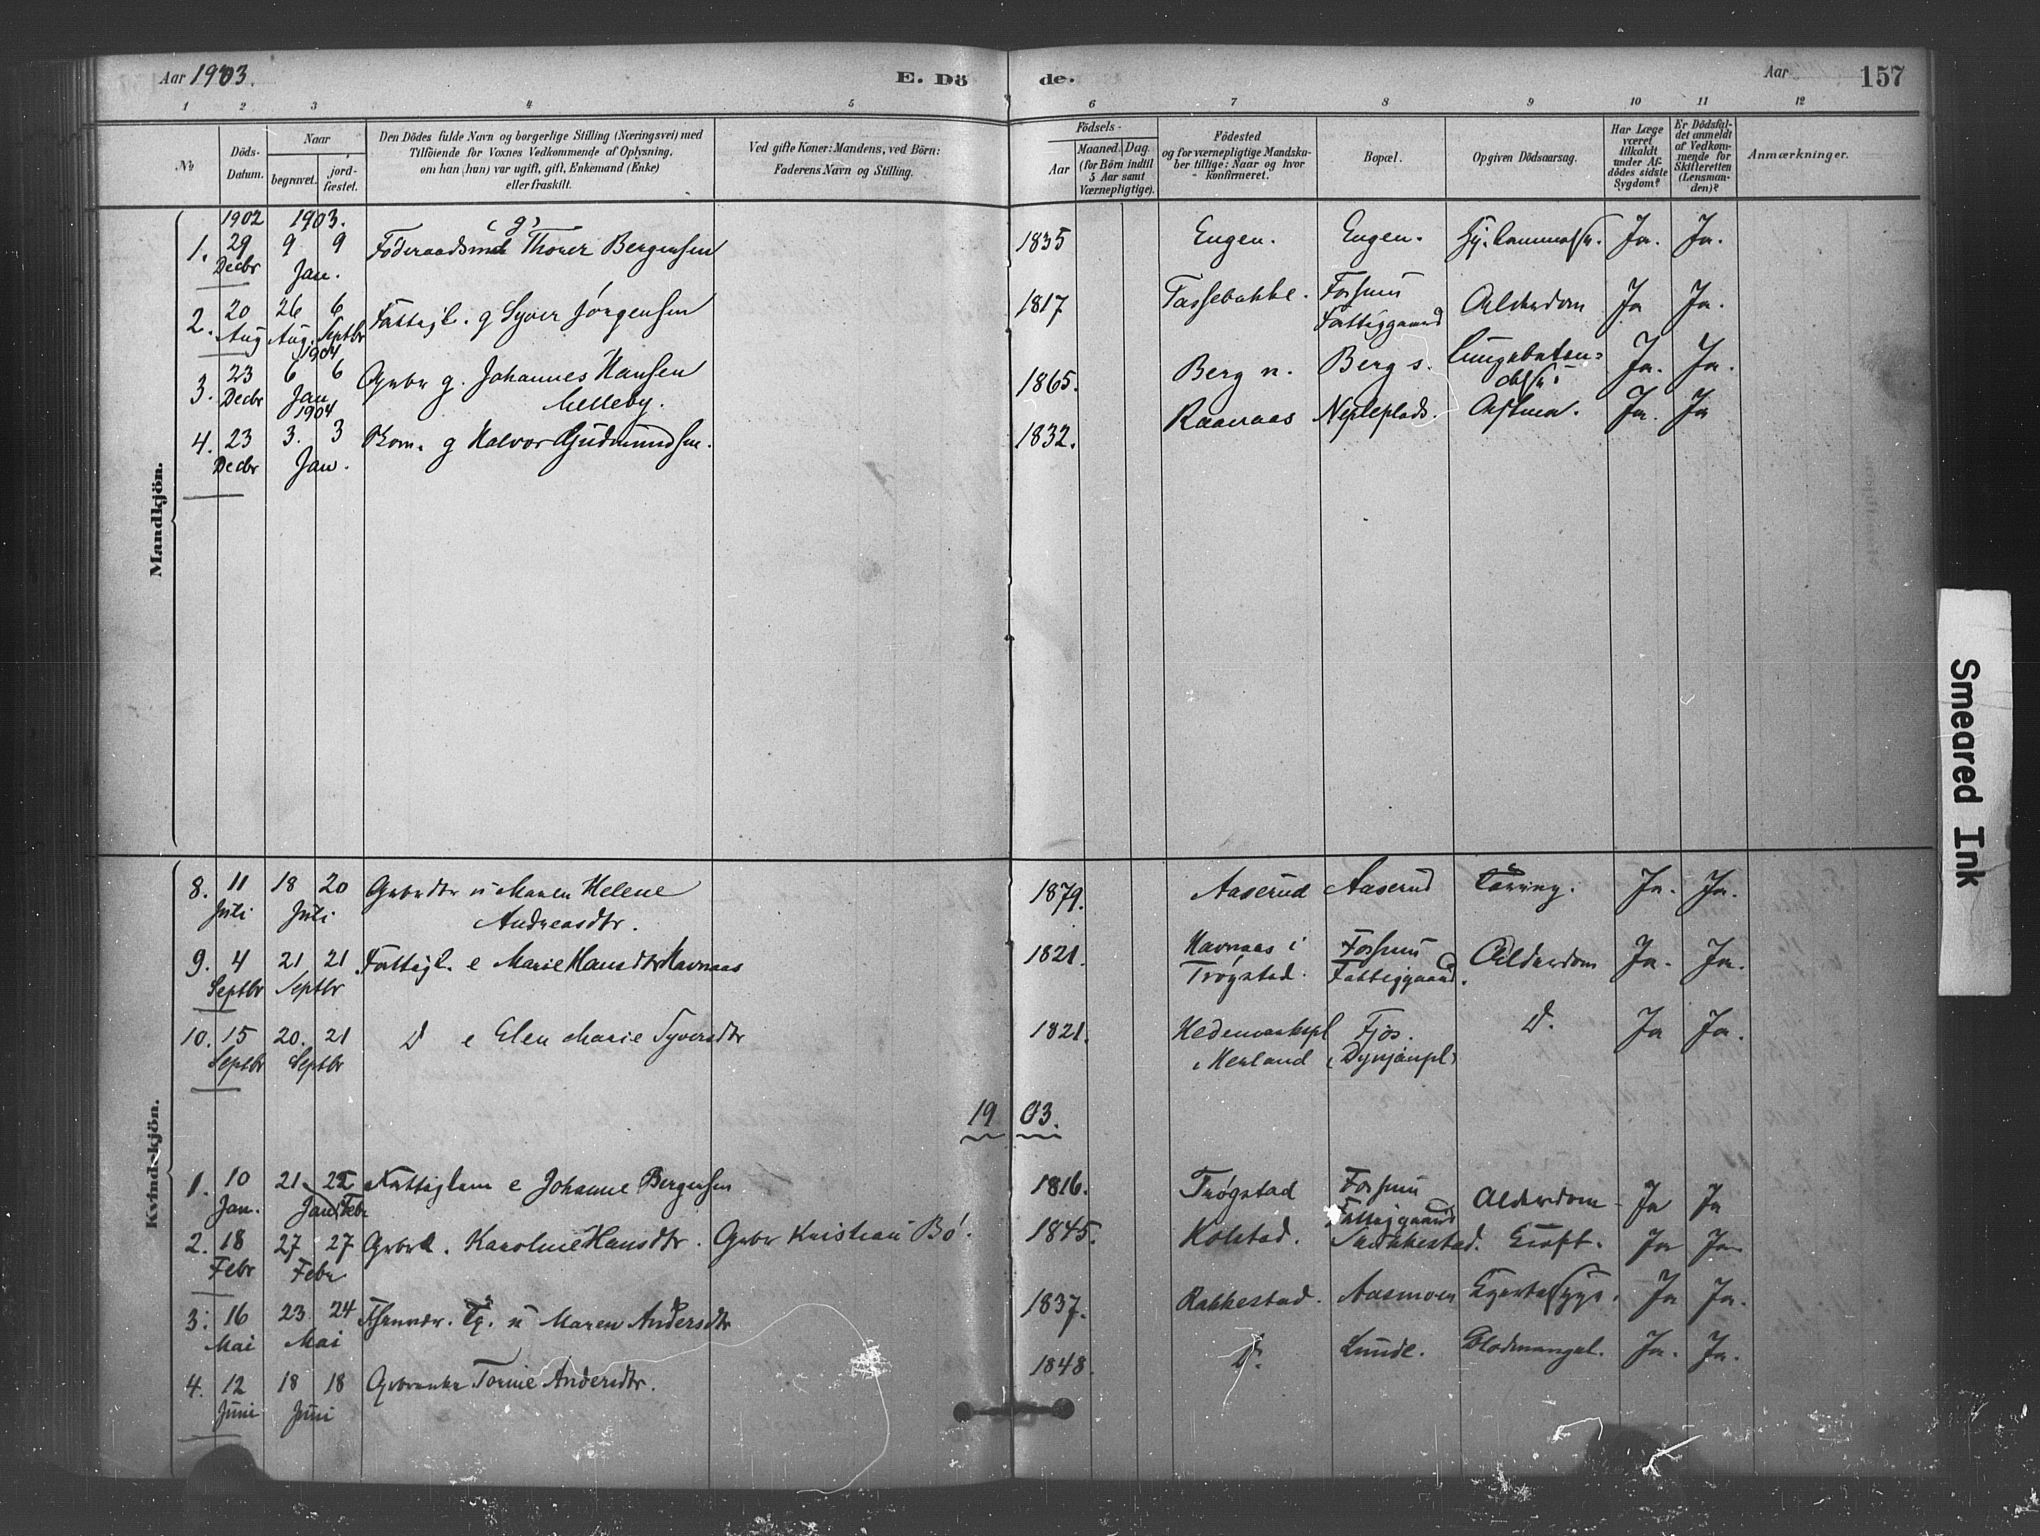 Aar 1903.
E. Dö
de.
Aar
157
1 2 3 4 5 6 7 8 9 10 11 12
No.
Döds-
Datum.
Naar
begravet.
jord-
fæstet.
Den Dödes fulde Navn og borgerlige Stilling (Næringsvei) med
Tilföiende for Voxnes Vedkommende af Oplysning,
om han (hun) var ugift, gift, Enkemand (Enke)
eller fraskilt.
Ved gifte Koner: Mandens, ved Börn:
Faderens Navn og Stilling.
Födsels-
Aar
Maaned. Dag.
(for Börn indtil
5 Aar samt
Værnepligtige).
Födested
og for værnepligtige Mandska-
ber tillige: Naar og hvor
konfirmeret.
Bopæl.
Opgiven Dödsaarsag.
Har Læge
været
tilkaldt
under Af-
dödes sidste
Sygdom?
Er Dödsfal-
det anmeldt
af Vedkom-
mende for
Skifteretten
(Lensman-
den)?
Anmærkninger.
Mandkjön.
1902 1903.
1. 29 9 9 Föderaadsmd (g) Thorer Bergersen 1835 Eugen. Eugen. Ja. Ja.
Decbr Jan.
2. 20 26 6 Fattigl. g Syver Jørgensen 1817 Tassebakke. Fossum Alderdom Ja Ja.
Aug Aug. Septbr Fattiggaard
1904
3. 23 6 6 Gbr g. Johannes Hansen 1865. Berg n. Berg s. Lungebeten- Ja. Ja.
Decbr Jan Melleby.
1904
4. 23 3. 3 Kom. g Halvor Gudmundsen. 1832. Raanaas Ja. Ja
Decbr Jan.
Kvindekjön.
8. 11 18 20 Gbrdtr u Maren Helene 1879. Aaserud Aaserud Tæring. Ja. Ja.
Juli Juli Andreasdtr.
9. 4 21 21 Fattigl. e Marie Hansdtr Havnaas 1821. Havnaas i Fossum Alderdom Ja. Ja.
Septbr Septbr Trøgstad. Fattiggaard.
10. 15 20. 21 D e Elen Marie Syversdtr 1821. Hedemarkspl Fjøs. D. Ja Ja.
Septbr Septbr
19 03.
1. 10 21 22 Fattiglem e Johanne Bergersen 1816. Trøgstad Fossum Alderdom Ja Ja
Jan. Jan Febr Fattiggaard
2. 18 27 27 Karoline Hansdtr. Gbr Kristian Bø. 1845. Kolstad. Kræft. Ja Ja
Febr Febr
3. 16 23. 24 Tj. u Maren Andersdtr 1837. Rakkestad. Aasmoen Hjertesyge. Ja Ja.
Mai Mai
4. 12 18 18 Gbrenke Torine Andersdtr. 1848. D. Lunde. Blodmangel. Ja. Ja.
Juni Juni
Smeared Ink